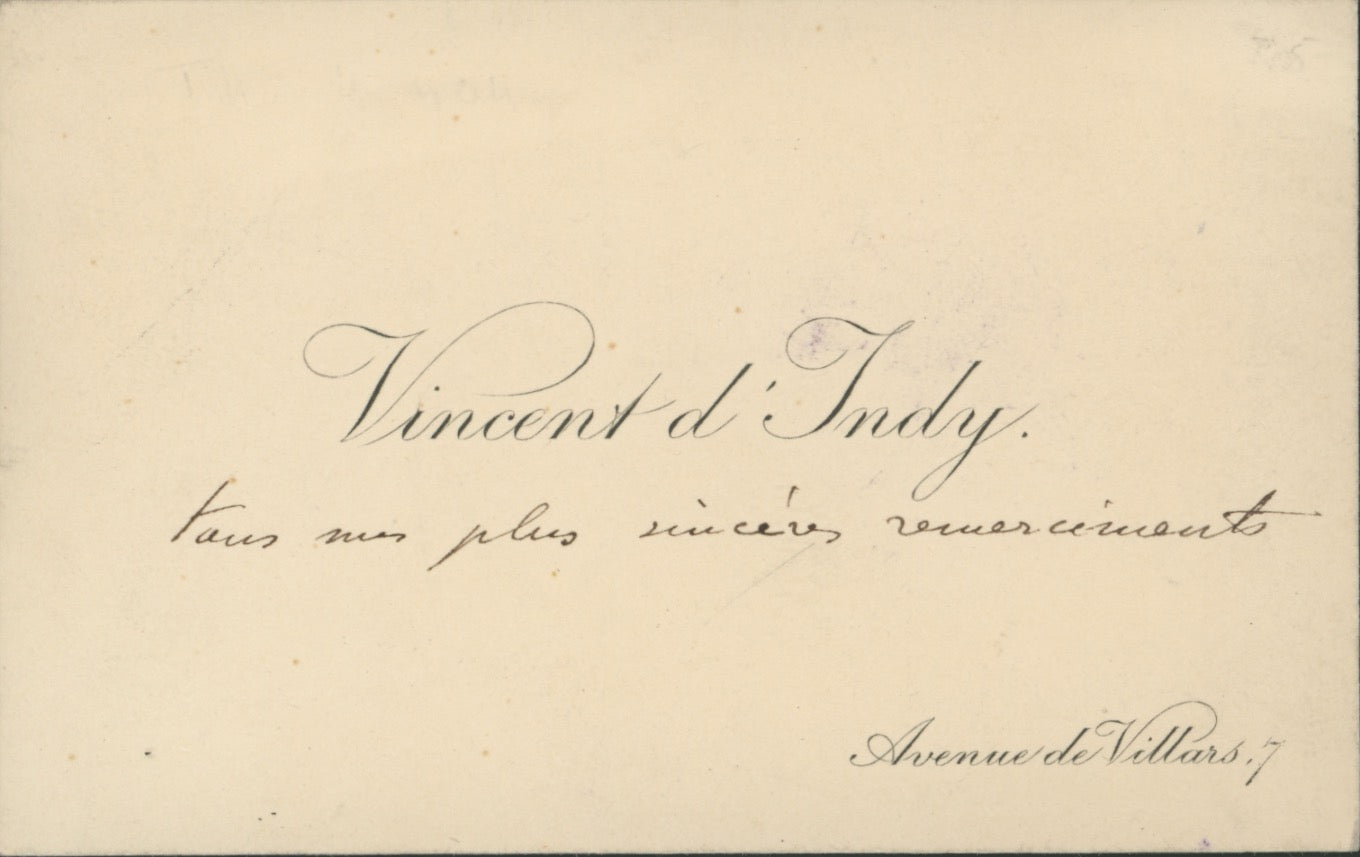 Vincent d'Indy.
tous mes plus sincères remerciments
Avenue de Villars, 7